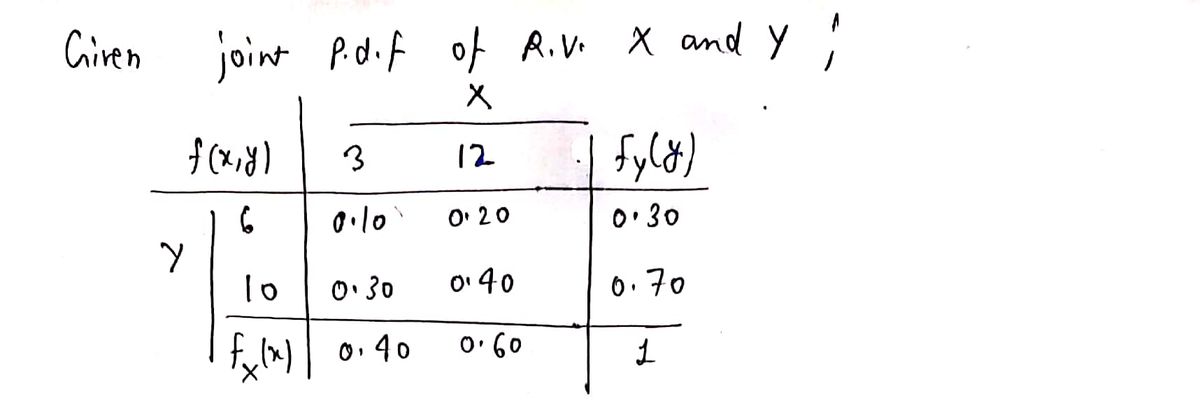 Given joint P.d.f of R.V. X and Y ;
X
f(x,y) 3 12 fy(y)
6 0.10 0.20 0.30
Y
10 0.30 0.40 0.70
fx(x) 0.40 0.60 1